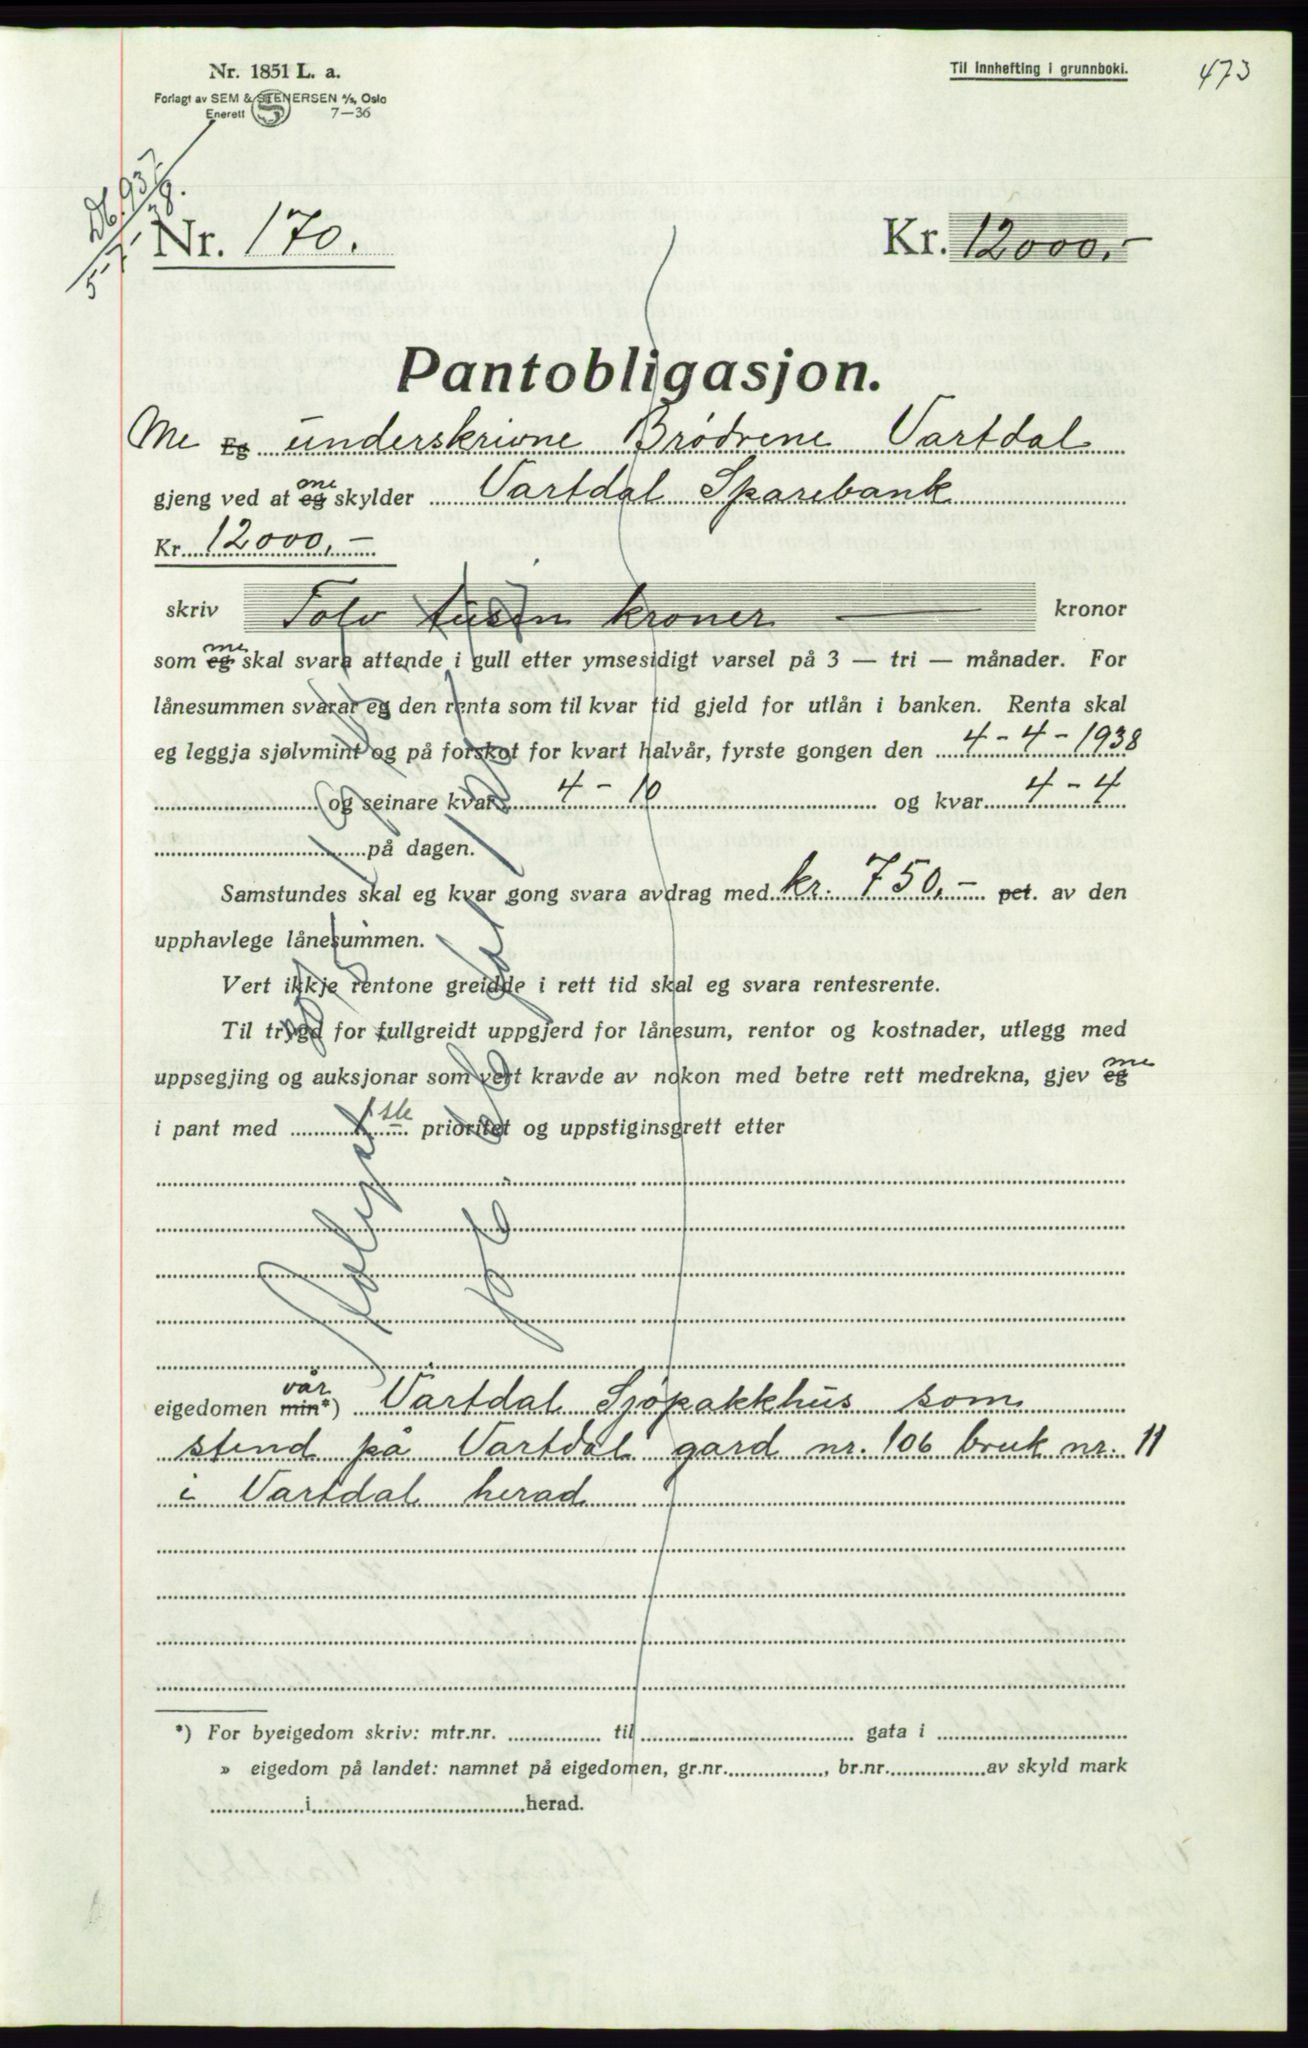 Nr. 1851 L. a.
Forlagt av SEM & STENERSEN A/S, Oslo
Enerett 7—36
Til innhefting i grunnboki.
473
Nr. 170.
Kr. 12000.-
Pantobligasjon.
Me eg underskrivne Brødrene Vartdal
gjeng ved at eg me skylder Vartdal Sparebank
Kr. 12000,-
skriv Tolv tusen kroner — kronor
som eg me skal svara attende i gull etter ymsesidigt varsel på 3 — tri — månader. For
lånesummen svarar eg den renta som til kvar tid gjeld for utlån i banken. Renta skal
eg leggja sjølvmint og på forskot for kvart halvår, fyrste gongen den 4 - 4 - 1938
og seinare kvar 4 - 10 og kvar 4 - 4
på dagen.
Samstundes skal eg kvar gong svara avdrag med kr. 750,- pct. av den
upphavlege lånesummen.
Vert ikkje rentone greidde i rett tid skal eg svara rentesrente.
Til trygd for fullgreidt uppgjerd for lånesum, rentor og kostnader, utlegg med
uppsegjing og auksjonar som vert kravde av nokon med betre rett medrekna, gjev eg me
i pant med 1ste prioritet og uppstiginsgrett etter
eigedomen min*) vår Vartdal Sjøpakkhus som
stend på Vartdal gard nr. 106 bruk nr. 11
i Vartdal herad
*) For byeigedom skriv: mtr.nr. til gata i
» eigedom på landet: namnet på eigedomen, gr.nr. , br.nr. av skyld mark
i herad.